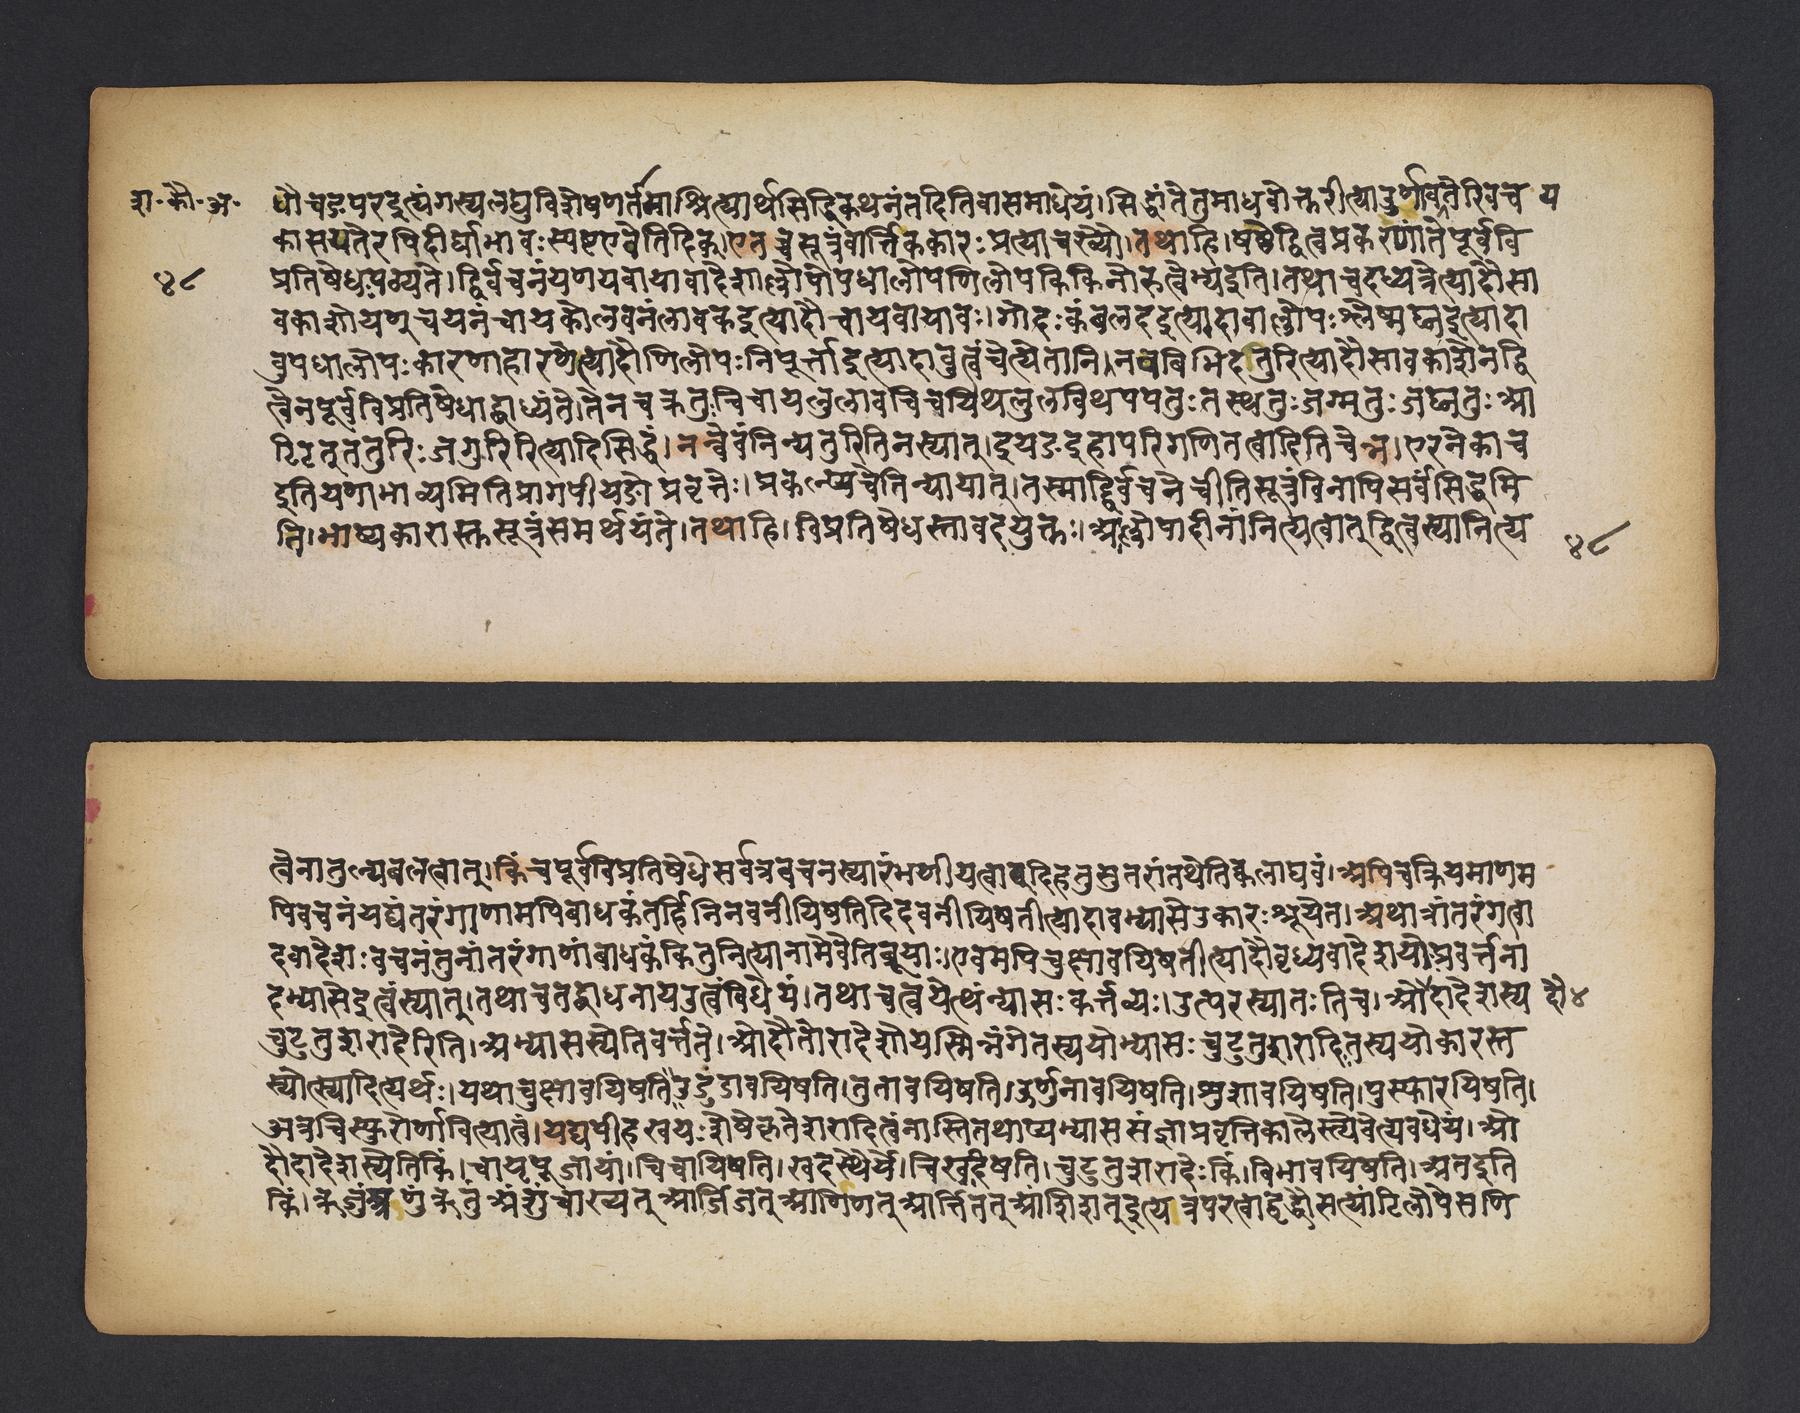 श॰ कौ॰ अ॰
४८
धौ चङ्परइत्यंगस्यलघुविशेषणतमाश्रित्यार्थसिद्धिकथनंतदितिवासमाधेयं।सिद्धांतेतुमाधवोक्तरीत्याउर्णावतेरिवच य
कासयतेरपिदीर्घाभावःस्पष्टएवेतिदिक्।एतच्चसूत्रंवार्त्तिककारःप्रत्याचख्यौ।तथाहि।षष्ठेद्वित्वप्रकरणांतेपूर्ववि
प्रतिषेधःपठ्यते।द्विर्वचनंयणयवायावादेशाल्लोपोपधालोपणिलोपकिकिनोरुत्वेभ्यइति।तथाचदध्यत्रेत्यादौसा
वकाशोयण्चयनंचायकोलवनंलावकइत्यादौचायवायावः।गोदःकंबलदइत्यादावाल्लोपःश्लेष्मघ्नइत्यादा
वुपधालोपःकारणाहारणेत्यादौणिलोपःनिपूर्त्ताइत्यादावुत्वंचेत्येतानि।नचबिभिदतुरित्यादौसावकाशेनद्वि
त्वेनपूर्वविप्रतिषेधाद्बाध्यंते।तेनचक्रतुःचिचायलुलावचिचयिथलुलविथपपतुःतस्थतुःजग्मतुःजघ्नतुःआ
टिटत्ततुरिःजगुरिरित्यादिसिद्धं।नन्वेवंनिन्यतुरितिनस्यात्।इयङइहापरिगणितत्वादितिचेन्न।एरनेकाच
इतियणाभाव्यमितिप्रागपीयङोप्रवृत्तेः।प्रकल्प्यचेतिन्यायात्।तस्माद्द्विर्वचनेचीतिसूत्रंविनापिसर्वंसिद्धमि
ति।भाष्यकारास्तुसूत्रंसमर्थयंते।तथाहि।विप्रतिषेधस्तावदयुक्तः।आल्लोपादीनांनित्यत्वात्द्वित्वस्यानित्य
४८
त्वेनातुल्यबलत्वात्।किंचपूर्वविप्रतिषेधेसर्वत्रवचनस्यारंभणीयत्वाद्यदिहतुसुतरांतथेतिक्वलाघवं।अपिचक्रियमाणम
पिवचनंयद्यंतरंगाणामपिबाधकंतर्हिनिनवनीयिषतिदिदवनीयिषतीत्यादावभ्यासेउकारःश्रूयेत।अथात्रांतरंगत्वा
दवादेशःवचनंतुनांतरंगाणांबाधकंकिंतुनित्यानामेवेतिब्रूयाः।एवमपिचुक्षावयिषतीत्यादौवृध्यवादेशयोःप्रवर्त्तना
दभ्यासेइत्वंस्यात्।तथाचतद्बाधनायउत्वंविधेयं।तथाचत्वयेत्थंन्यासःकर्त्तव्यः।उत्परस्यातःतिच।ओदौदादेशस्य दौ४
चुटुतुशरादेरिति।अभ्यासस्येतिवर्त्तते।ओदौतोरादेशोयस्मिन्नंगेतस्ययोभ्यासःचुटुतुशरादिःतस्ययोकारस्त
स्योत्स्यादित्यर्थः।यथाचुक्षावयिषतिउडुडावयिषति।तुतावयिषति।ऊर्णुनावयिषति।शुशावयिषति।पुस्फारयिषति।
अत्रचिस्फुरोर्णावित्यात्वं।यद्यपीहखयःशेषेकृतेशरादित्वंनास्तितथाप्यभ्याससंज्ञाप्रवृत्तिकालेस्त्येवेत्यवधेयं।ओ
दौदादेशस्येतिकिं।चायृपूजायां।चिचायिषति।खदस्थैर्ये।चिखदिषति।चुटुतुशरादेःकिं।बिभावयिषति।अतइति
किं।ऋजुंऋणुंऋतुंअंशुंचाख्यत्आर्जिजत्आर्णिणत्आर्त्तितत्आंशिशत्इत्यत्रपरत्वाद्वृद्धौसत्यांटिलोपेसणि